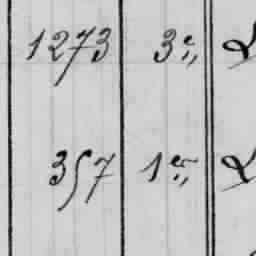 1273 3e,,
357 1er,,